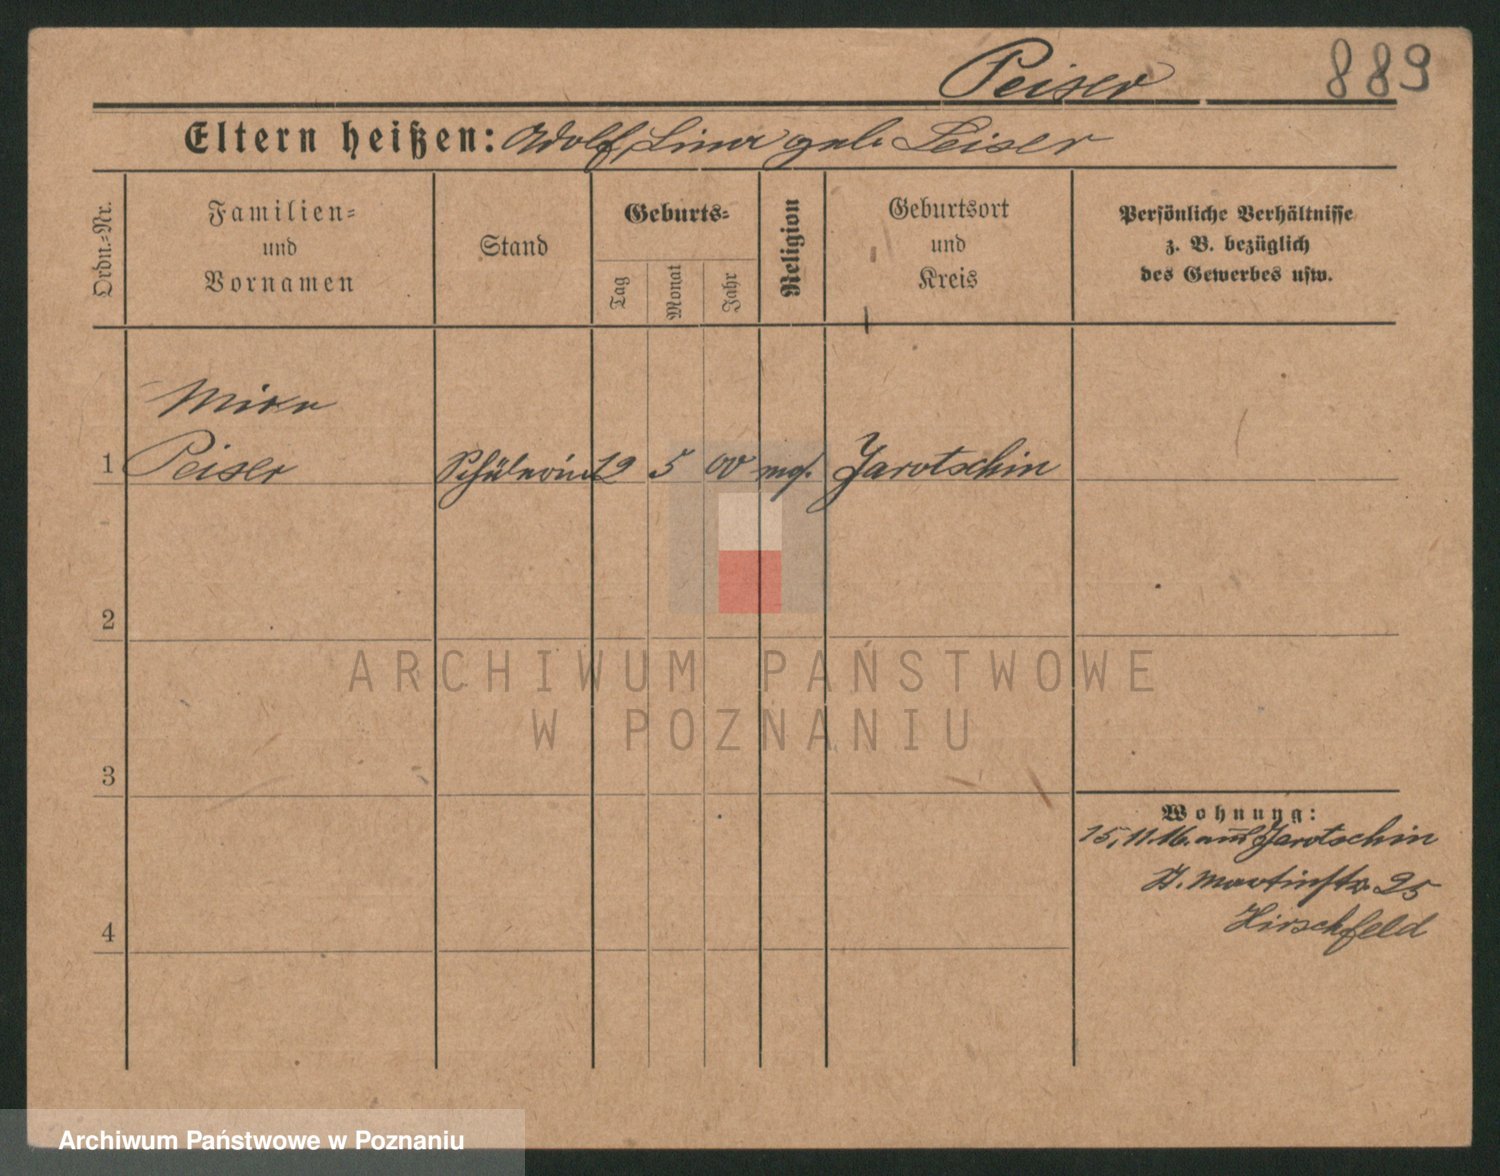 Peiser 889
Eltern heißen: Adolf, Lina geb. Leiser
Ordn.-Nr.
Familien-
und
Vornamen
Stand
Geburts-
Tag
Monat
Jahr
Religion
Geburtsort
und
Kreis
Persönliche Verhältnisse
z. B. bezüglich
des Gewerbes usw.
1 Peiser Schülerin 12 5 00 Jarotschin
2
ARCHIWUM PAŃSTWOWE
W POZNANIU
3
Wohnung:
15,11.16. aus Jarotschin
St. Martinstr. 25
Hirschfeld
4
Archiwum Państwowe w Poznaniu